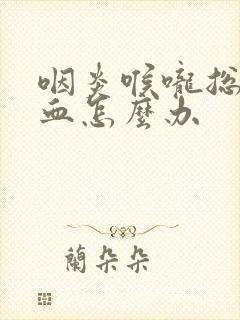 咽炎喉嚨総
血怎麼办
蘭朵朵